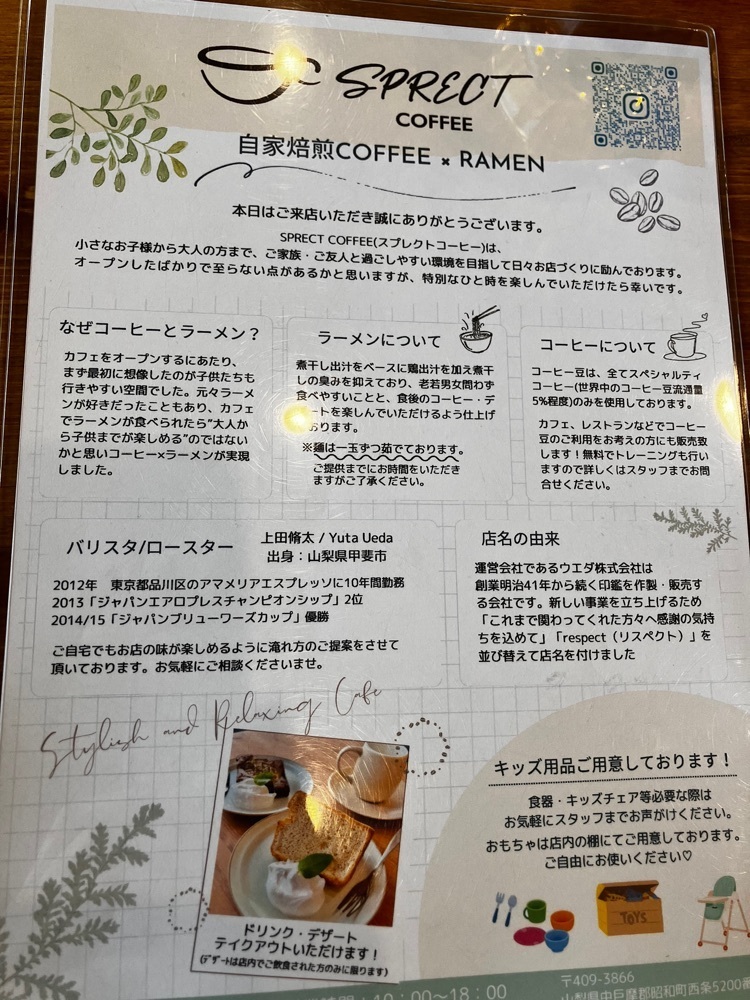 SPRECT
COFFEE
自家焙煎COFFEE × RAMEN
本日はご来店いただき誠にありがとうございます。
SPRECT COFFEE(スプレクトコーヒー)は、
小さなお子様から大人の方まで、ご家族・ご友人と過ごしやすい環境を目指して日々お店づくりに励んでおります。
オープンしたばかりで至らない点があるかと思いますが、特別なひと時を楽しんでいただけたら幸いです。
なぜコーヒーとラーメン？
カフェをオープンするにあたり、
まず最初に想像したのが子供たちも
行きやすい空間でした。元々ラーメ
ンが好きだったこともあり、カフェ
でラーメンが食べられたら"大人か
ら子供までが楽しめる"のではない
かと思いコーヒー×ラーメンが実現
しました。
ラーメンについて
煮干し出汁をベースに鶏出汁を加え煮干
しの臭みを抑えており、老若男女問わず
食べやすいことと、食後のコーヒー・デ
ートを楽しんでいただけるよう仕上げ
おります。
※麺は一玉ずつ茹でております。
ご提供までにお時間をいただき
ますがご了承ください。
コーヒーについて
コーヒー豆は、全てスペシャルティ
コーヒー(世界中のコーヒー豆流通量
5%程度)のみを使用しております。
カフェ、レストランなどでコーヒー
豆のご利用をお考えの方にも販売致
します！無料でトレーニングも行い
ますので詳しくはスタッフまでお問
合せください。
バリスタ/ロースター
上田脩太 / Yuta Ueda
出身：山梨県甲斐市
2012年 東京都品川区のアマメリアエスプレッソに10年間勤務
2013「ジャパンエアロプレスチャンピオンシップ」2位
2014/15「ジャパンブリューワーズカップ」優勝
ご自宅でもお店の味が楽しめるように淹れ方のご提案をさせて
頂いております。お気軽にご相談くださいませ。
店名の由来
運営会社であるウエダ株式会社は
創業明治41年から続く印鑑を作製・販売す
る会社です。新しい事業を立ち上げるため
「これまで関わってくれた方々へ感謝の気持
ちを込めて」「respect（リスペクト）」を
並び替えて店名を付けました
Stylish and Relaxing Cafe
キッズ用品ご用意しております！
食器・キッズチェア等必要な際は
お気軽にスタッフまでお声がけください。
おもちゃは店内の棚にてご用意しております。
ご自由にお使いください♡
TOYS
ドリンク・デザート
テイクアウトいただけます！
(デザートは店内でご飲食された方のみに限ります)
10：00〜18：00
〒409-3866
山梨県中巨摩郡昭和町西条5200